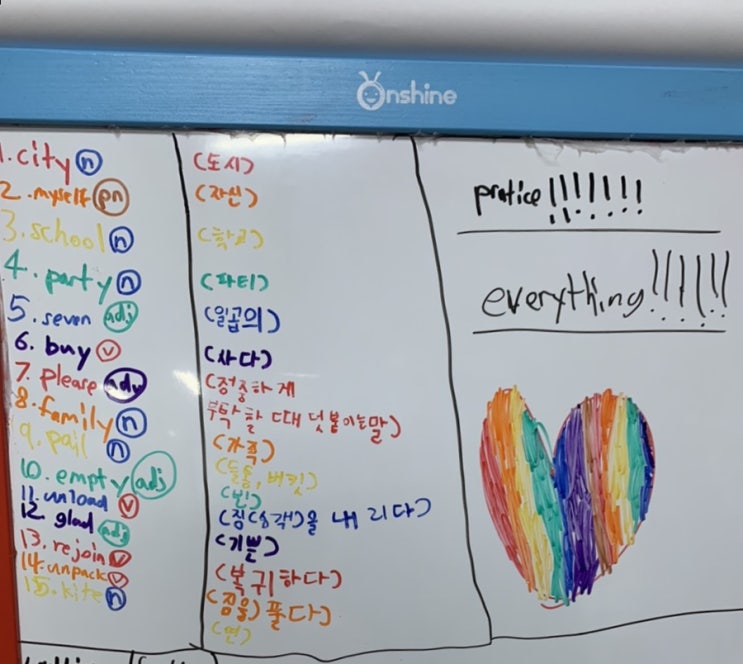 Onshine
1. city n
2. myself pn
3. school n
4. party n
5. seven adj
6. buy v
7. please adv
8. family n
9. pail n
10. empty adj
11. unload v
12. glad adj
13. rejoin v
14. unpack v
15. kite n
(도시)
(자신)
(학교)
(파티)
(일곱의)
(사다)
(정중하게
부탁할 때 덧붙이는말)
(가족)
(들통, 버킷)
(빈)
(짐(승객)을 내리다)
(기쁜)
(복귀하다)
(짐을) 풀다)
(연)
pratice!!!!!!!
everything!!!!!!